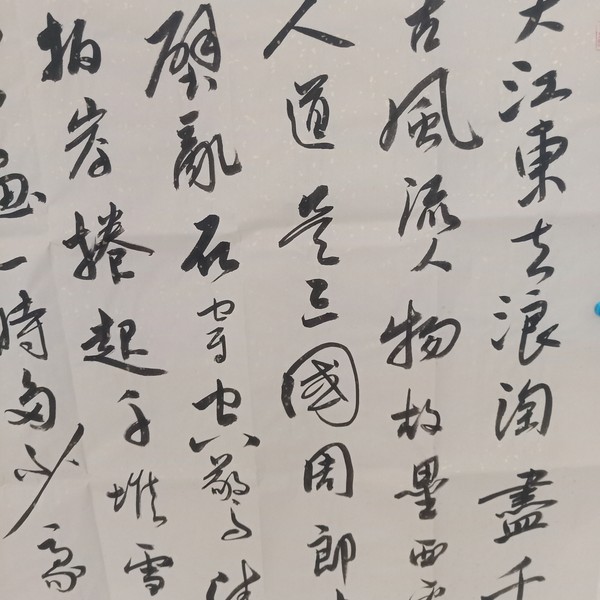 大江東去浪淘盡千
古風流人物故壘西
人道是三國周郎
壁亂石穿空驚濤
拍岸捲起千堆雪
畫一時多少豪